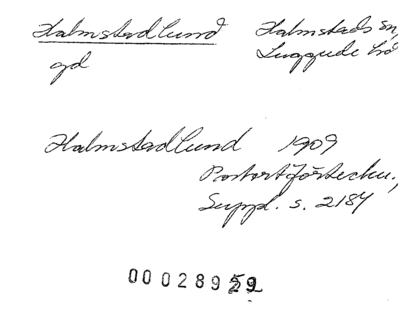 Halmstadlund Halmstads sn,
gd Luggude hd
Halmstadlund 1909
Postortförteckn.,
Suppl. s. 2184
00028959